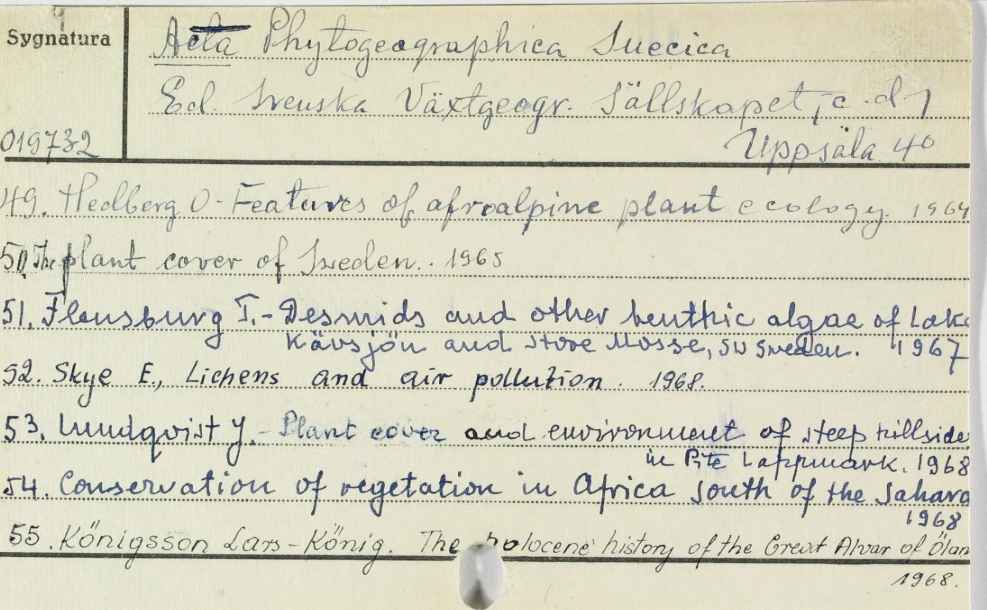 Sygnatura
Acta Phytogeographica Suecica
Ed. Svenska Växtgeogr. Sällskapet, c. d.
019732
Uppsala 40
49. Hedberg O - Features of afroalpine plant ecology. 1964
50. The plant cover of Sweden. 1965
51. Flensburg T. - Desmids and other benthic algae of Lake
Kävsjön and Store Mosse, SW Sweden. 1967
52. Skye E., Lichens and air pollution. 1968.
53. Lundqvist J. - Plant cover and environment of steep hillside
in Pite Lappmark. 1968
54. Conservation of vegetation in Africa south of the Sahara
1968
55. Königsson Lars-König. The holocene history of the Great Alvar of Ölan
1968.